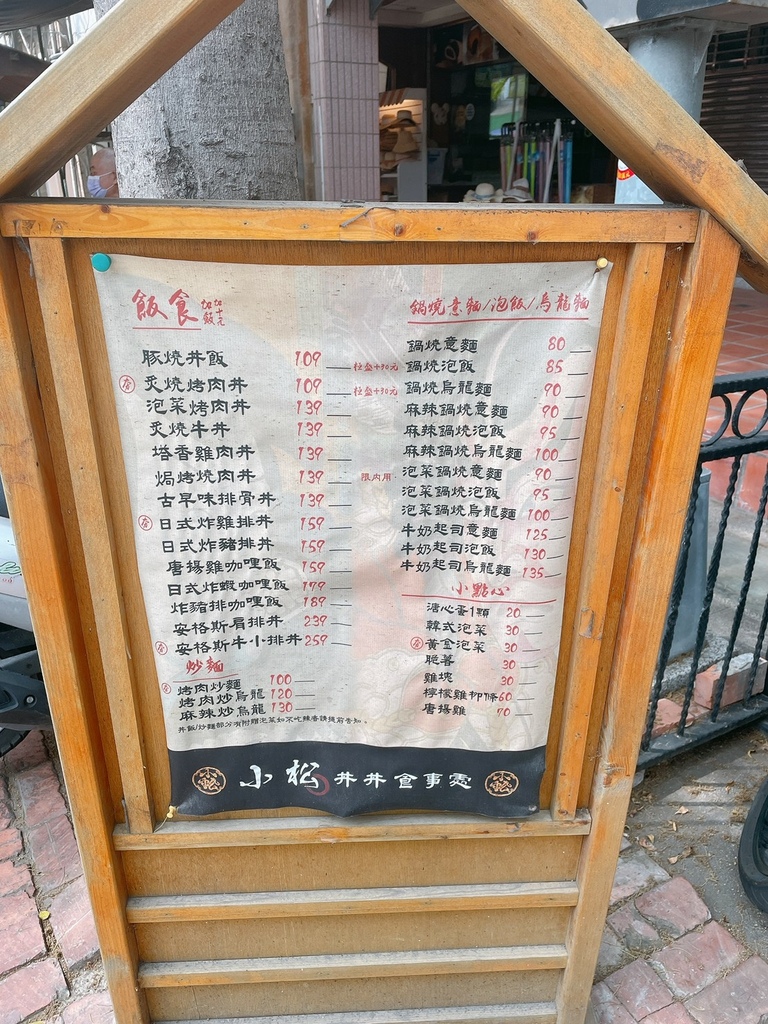 飯食 加飯加十元
豚燒丼飯 109
炙燒烤肉丼 109
泡菜烤肉丼 139
炙燒牛丼 139
塔香雞肉丼 139
焗烤燒肉丼 139 限內用
古早味排骨丼 139
日式炸雞排丼 159
日式炸豬排丼 159
唐揚雞咖哩飯 159
日式炸蝦咖哩飯 179
炸豬排咖哩飯 189
安格斯肩排丼 239
安格斯牛小排丼 259
炒麵
烤肉炒麵 100
烤肉炒烏龍 120
麻辣炒烏龍 130
丼飯/炒麵部分有附贈泡菜如不吃辣者請提前告知。
鍋燒意麵/泡飯/烏龍麵
鍋燒意麵 80
鍋燒泡飯 85
鍋燒烏龍麵 90
麻辣鍋燒意麵 90
麻辣鍋燒泡飯 95
麻辣鍋燒烏龍麵 100
泡菜鍋燒意麵 90
泡菜鍋燒泡飯 95
泡菜鍋燒烏龍麵 100
牛奶起司意麵 125
牛奶起司泡飯 130
牛奶起司烏龍麵 135
小點心
溏心蛋1顆 20
韓式泡菜 30
黃金泡菜 30
脆薯 30
雞塊 30
檸檬雞柳條 60
唐揚雞 70
小松 丼丼食事處